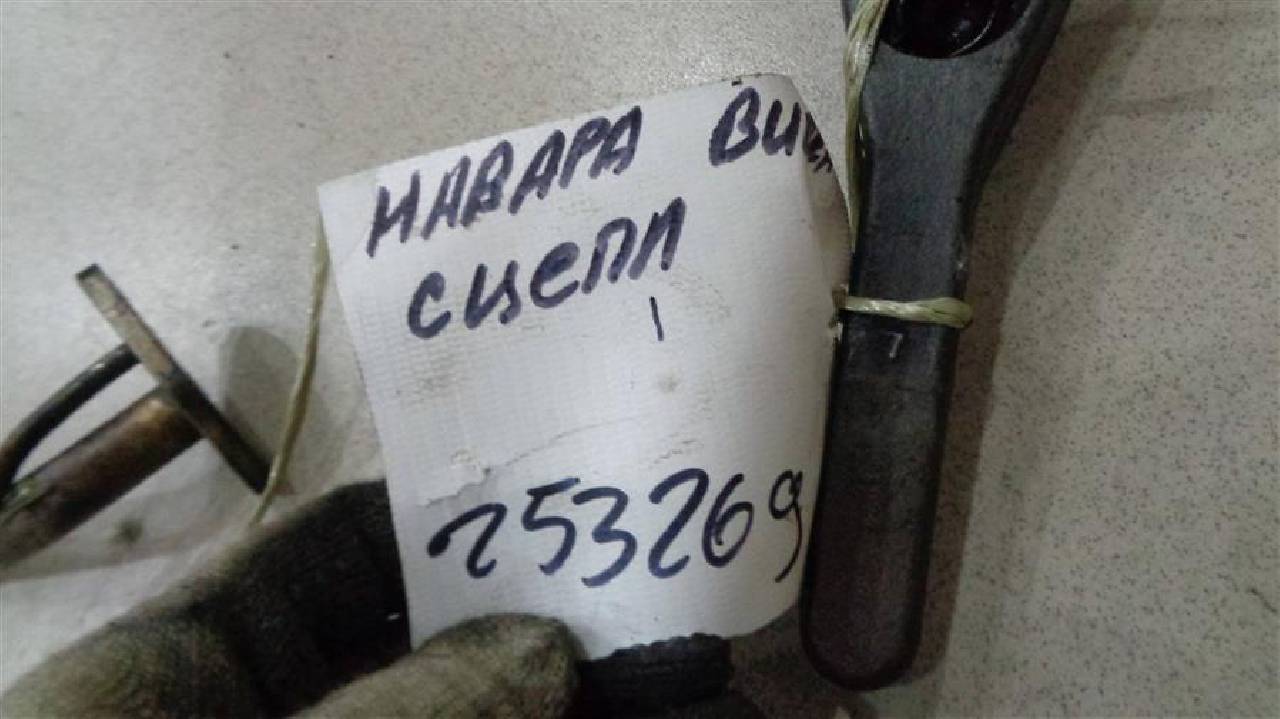 НАВАРА
СЦЕПЛ
253269